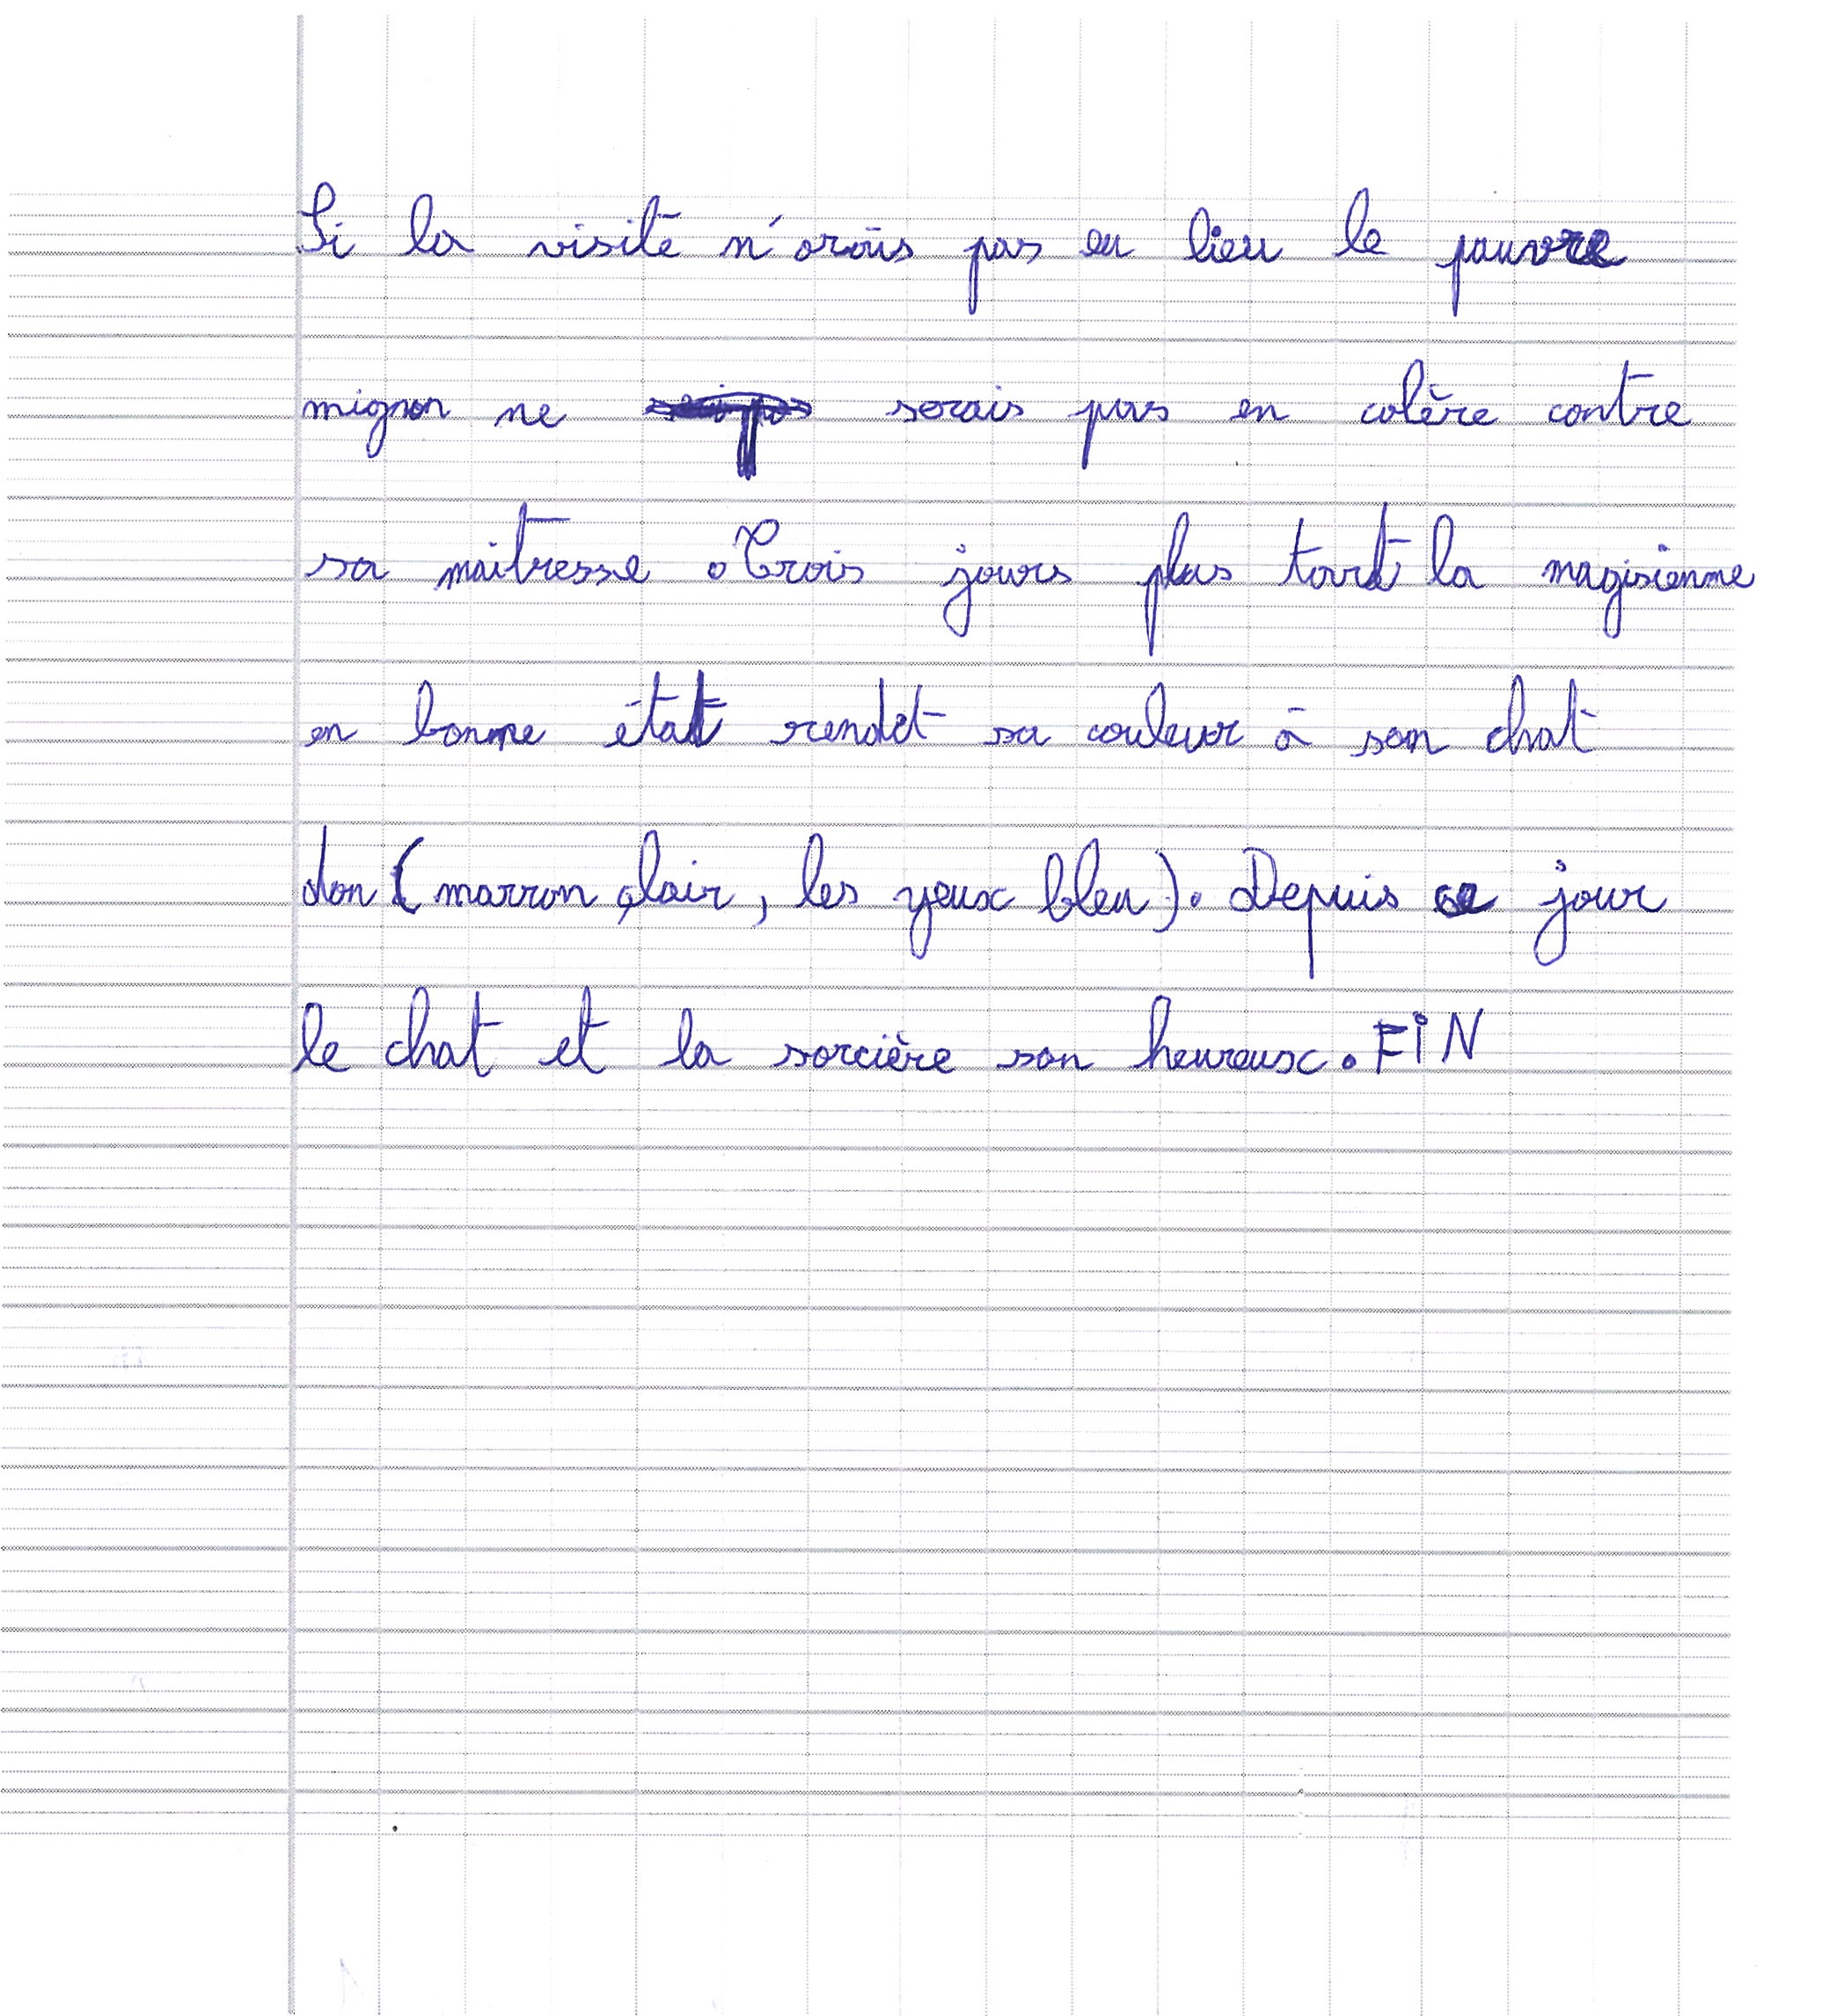 Si la visite n'arais pas eu lieu le pauvre
mignon ne serais pas en colère contre
sa maitresse. Trois jours plus tard la magisienne
en bonne état rendet sa couleur à son chat
don (marron clair, les yeux bleu). Depuis ce jour
le chat et la sorcière son heureux. FIN